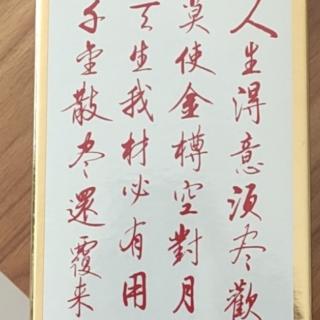 人生得意須尽歡
莫使金樽空對月
天生我材必有用
千金散尽還覆来